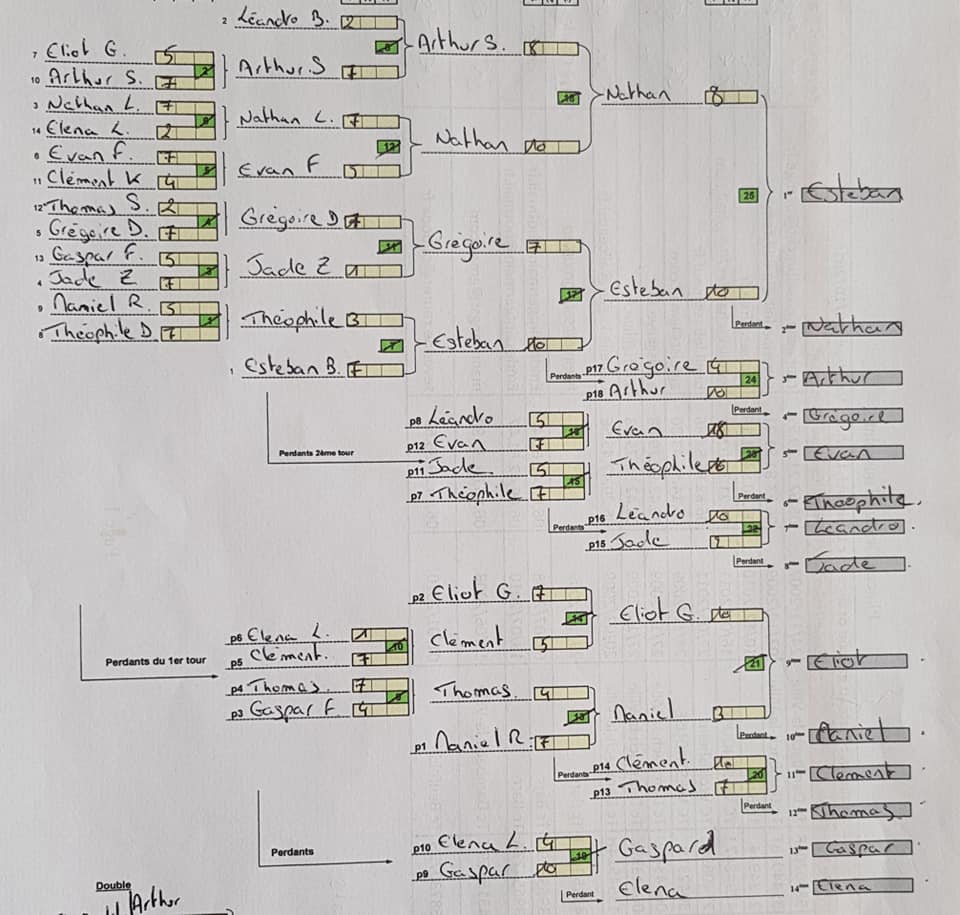 2 Léandro B. 2
8
Arthur S. 8
7 Eliot G. 5
2
10 Arthur S. 7
Arthur S 7
18
Nathan 8
3 Nathan L. 7
14 Elena L. 2
Nathan L. 7
12
Nathan 10
6 Evan F. 7
5
11 Clément K 4
Evan F 5
25
1er Esteban
12 Thomas S. 2
4
5 Grégoire D. 7
Grégoire D 7
11
Grégoire 7
13 Gaspar F. 5
3
4 Jade Z 7
Jade Z 1
17
Esteban 10
9 Daniel R. 5
1
8 Théophile D. 7
Théophile 3
7
Esteban 10
1 Esteban B. 7
Perdant
2ème Nathan
Perdants
p17 Grégoire 4
24
p18 Arthur 10
3ème Arthur
Perdant
4ème Grégoire
Perdants 2ème tour
p8 Léandro 5
16
p12 Evan 7
Evan 18
23
5ème Evan
p11 Jade 5
15
p7 Théophile 7
Théophile 16
Perdant
6ème Théophile.
Perdants
p16 Léandro 10
22
p15 Jade 2
7ème Léandro.
Perdant
8ème Jade
Perdants du 1er tour
p2 Eliot G. 7
14
Eliot G. 10
p6 Elena L. 1
10
p5 Clément. 7
Clément 5
21
9ème Eliot
p4 Thomas. 7
9
p3 Gaspar F 4
Thomas. 4
13
Daniel 3
p1 Daniel R. 7
Perdant
10ème Daniel
Perdants
p14 Clément. 10
20
p13 Thomas 7
11ème Clément
Perdant
12ème Thomas.
Perdants
p10 Elena L. 4
19
p9 Gaspar 10
Gaspard
13ème Gaspar
Perdant
Elena
14ème Elena
Double
Arthur